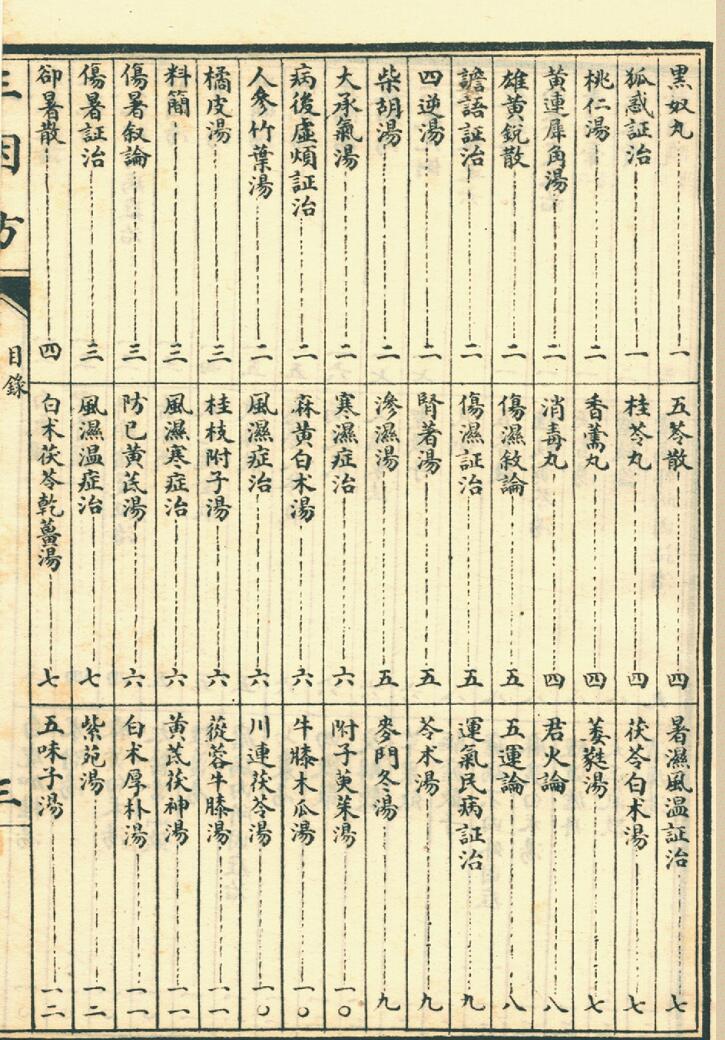 黑奴丸 一
狐惑証治 一
桃仁湯 二
黃連犀角湯 二
雄黃銳散 二
譫語証治 二
四逆湯 二
柴胡湯 二
大承氣湯 二
病後虛煩証治 二
人參竹葉湯 二
橘皮湯 三
料簡 三
傷暑叙論 三
傷暑証治 三
卻暑散 四
五苓散 四
桂苓丸 四
香薷丸 四
消毒丸 四
傷濕敘論 五
傷濕証治 五
腎著湯 五
滲濕湯 五
寒濕症治 六
麻黃白朮湯 六
風濕症治 六
桂枝附子湯 六
風濕寒症治 六
防已黃芪湯 六
風濕温症治 七
白朮茯苓乾薑湯 七
暑濕風温証治 七
茯苓白朮湯 七
萎蕤湯 七
君火論 八
五運論 八
運氣民病証治 九
苓朮湯 九
麥門冬湯 九
附子茰茱湯 一〇
牛膝木瓜湯 一〇
川連茯苓湯 一〇
蓯蓉牛膝湯 一一
黃芪茯神湯 一一
白朮厚朴湯 一一
紫菀湯 一二
五味子湯 一二
三因方
目錄
三